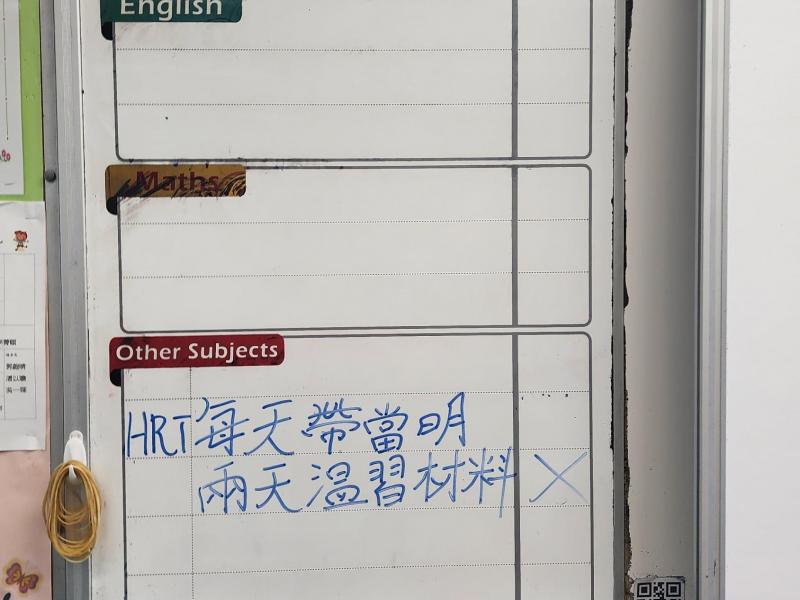 English
Maths
Other Subjects
HRT 每天帶當明
兩天溫習材料 ×